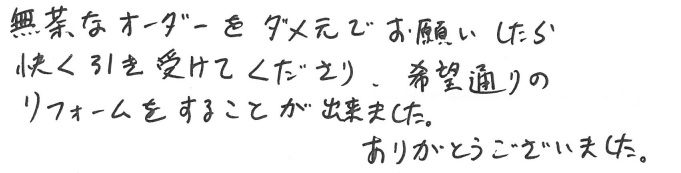 無茶なオーダーをダメ元でお願いしたら
快く引き受けてくださり、希望通りの
リフォームをすることが出来ました。
ありがとうございました。